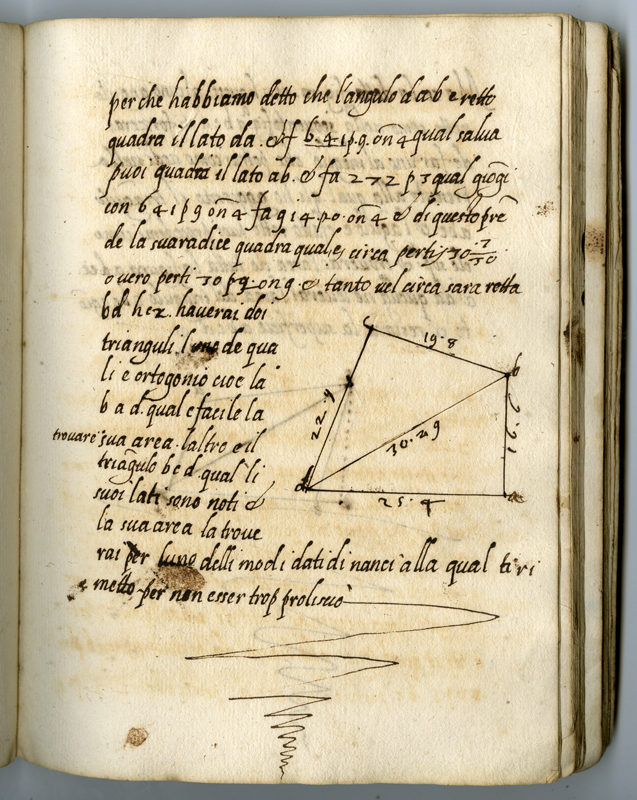 per che habbiamo detto che l'angulo d a b e retto
quadra il lato da. & f b. 4 1 p 9. on 4 qual salua
puoi quadra il lato ab. & fa 272 p 3 qual giõgi
con 6 4 1 p 9 on 4 fa 9 1 4. p 0. on 4 & di questo pre
de la sua radice quadra qual circa perti 30
o vero perti 30 p on 9 & tanto vel circa sara retta
bd haverai doi
trianguli l'uno de qua
li e ortogonio cioe la
b a d. qual e facile la
trovare sua area. laltro e il
triãgulo b c d. qual li
suoi lati sono noti &
la sua area la trove
rai per luno delli modi dati di nanci alla qual ti ri
metto per non esser trop prolisso
c
19. 8
b
22. 4
30. 29
d
25. 4
a